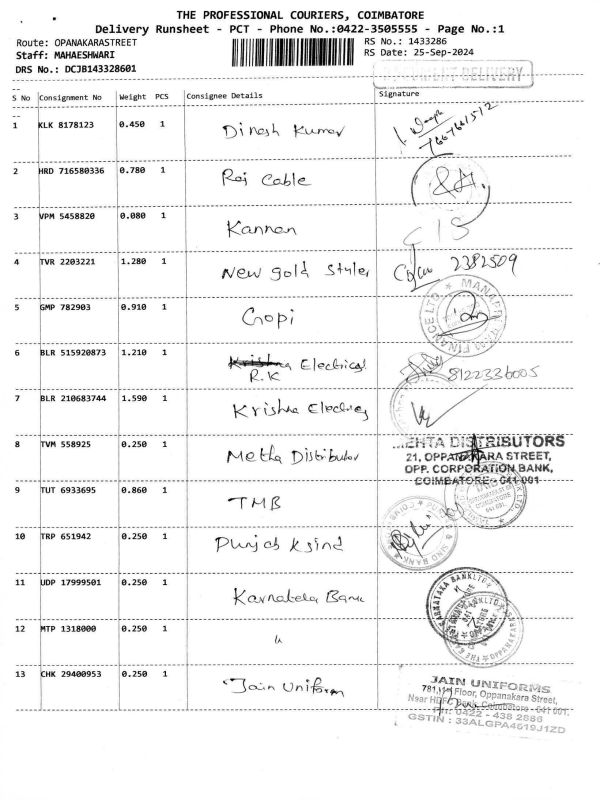 THE PROFESSIONAL COURIERS, COIMBATORE
Delivery Runsheet - PCT - Phone No.:0422-3505555 - Page No.:1
Route: OPANAKARASTREET RS No.: 1433286
Staff: MAHAESHWARI RS Date: 25-Sep-2024
DRS No.: DCJB143328601
DELIVERY
S No Consignment No Weight PCS Consignee Details Signature
1 KLK 8178123 0.450 1 Dinesh Kumar
2 HRD 716580336 0.780 1 Raj Cable
3 VPM 5458820 0.080 1 Kannan
4 TVR 2203221 1.280 1 New gold Styler 2382509
5 GMP 782903 0.910 1 Gopi
MANAPPURAM FINANCE LTD.
6 BLR 515920873 1.210 1 Krishna Electrical
R.K 8122336005
7 BLR 210683744 1.590 1 Krishna Electrics
8 TVM 558925 0.250 1 Metha Distributor
MEHTA DISTRIBUTORS
21, OPPANAKARA STREET,
OPP. CORPORATION BANK,
COIMBATORE - 641 001
9 TUT 6933695 0.860 1 TMB
10 TRP 651942 0.250 1 Punjab & Sind
11 UDP 17999501 0.250 1 Karnataka Bank
KARNATAKA BANK LTD
12 MTP 1318000 0.250 1 "
13 CHK 29400953 0.250 1 Jain Uniform
JAIN UNIFORMS
Floor, Oppanakara Street,
Near HDFC Bank, Coimbatore - 641 001.
PH: 0422 - 438 2886
GSTIN : 33ALGPA4619J1ZD